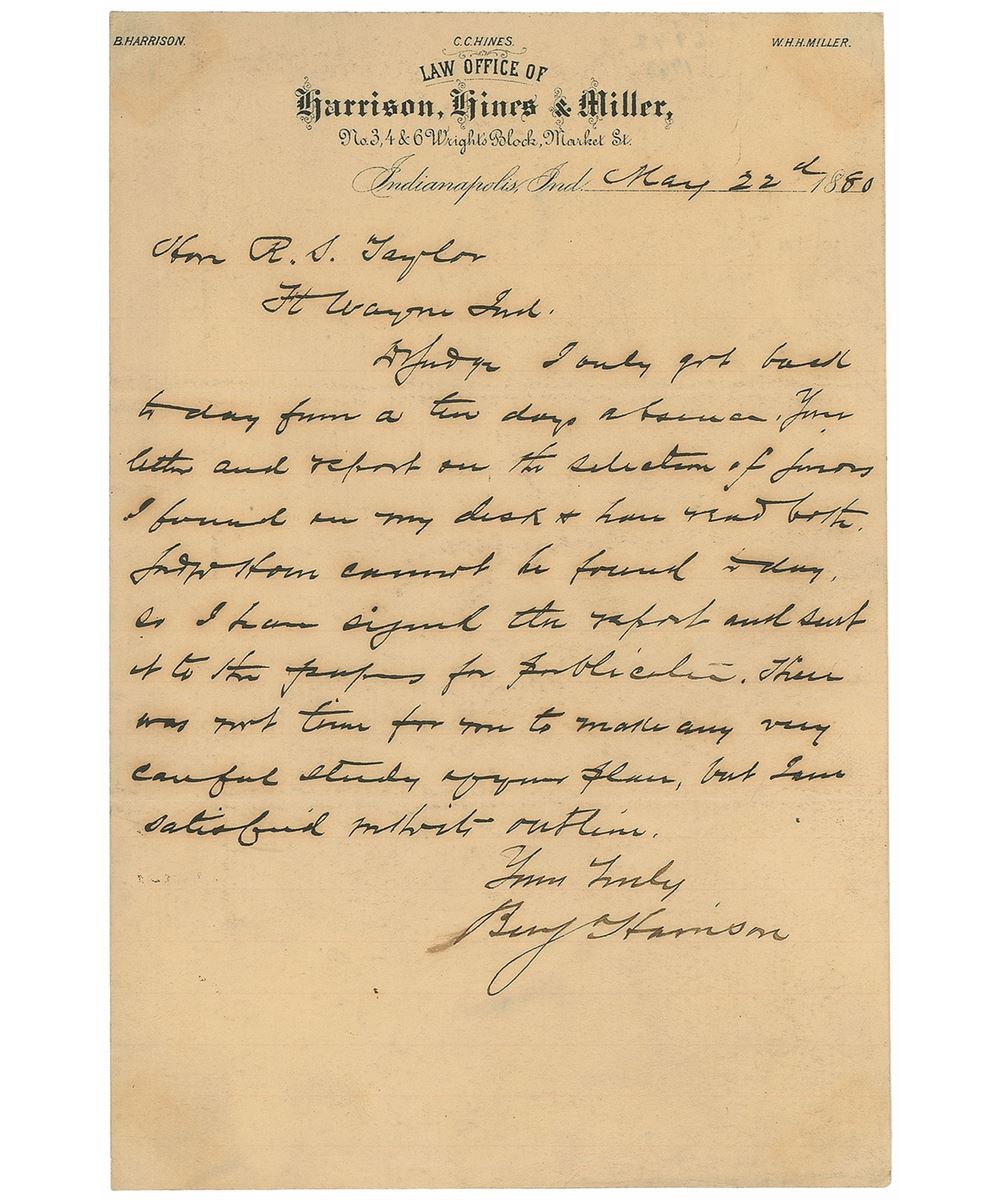 B. HARRISON. C. C. HINES. W. H. H. MILLER.
LAW OFFICE OF
Harrison, Hines & Miller,
No. 3, 4 & 6 Wright's Block, Market St.
Indianapolis, Ind. May 22d 1880
Hon R. S. Taylor
Ft Wayne Ind.
Dr Judge I only got back
to day from a ten days absence. Your
letter and report on the selection of jurors
I found on my desk & have read both.
Judge cannot be found to day,
so I have signed the report and sent
it to the papers for publication. There
was not time for me to make any very
careful study of your plan, but I am
satisfied with its outline.
Yours Truly
Benj Harrison